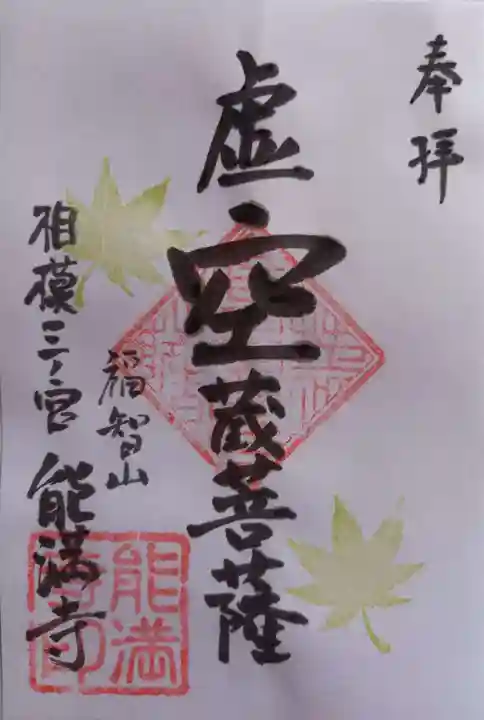 奉拝
虚空蔵菩薩
福智山
相模三ノ宮 能満寺
能満寺印